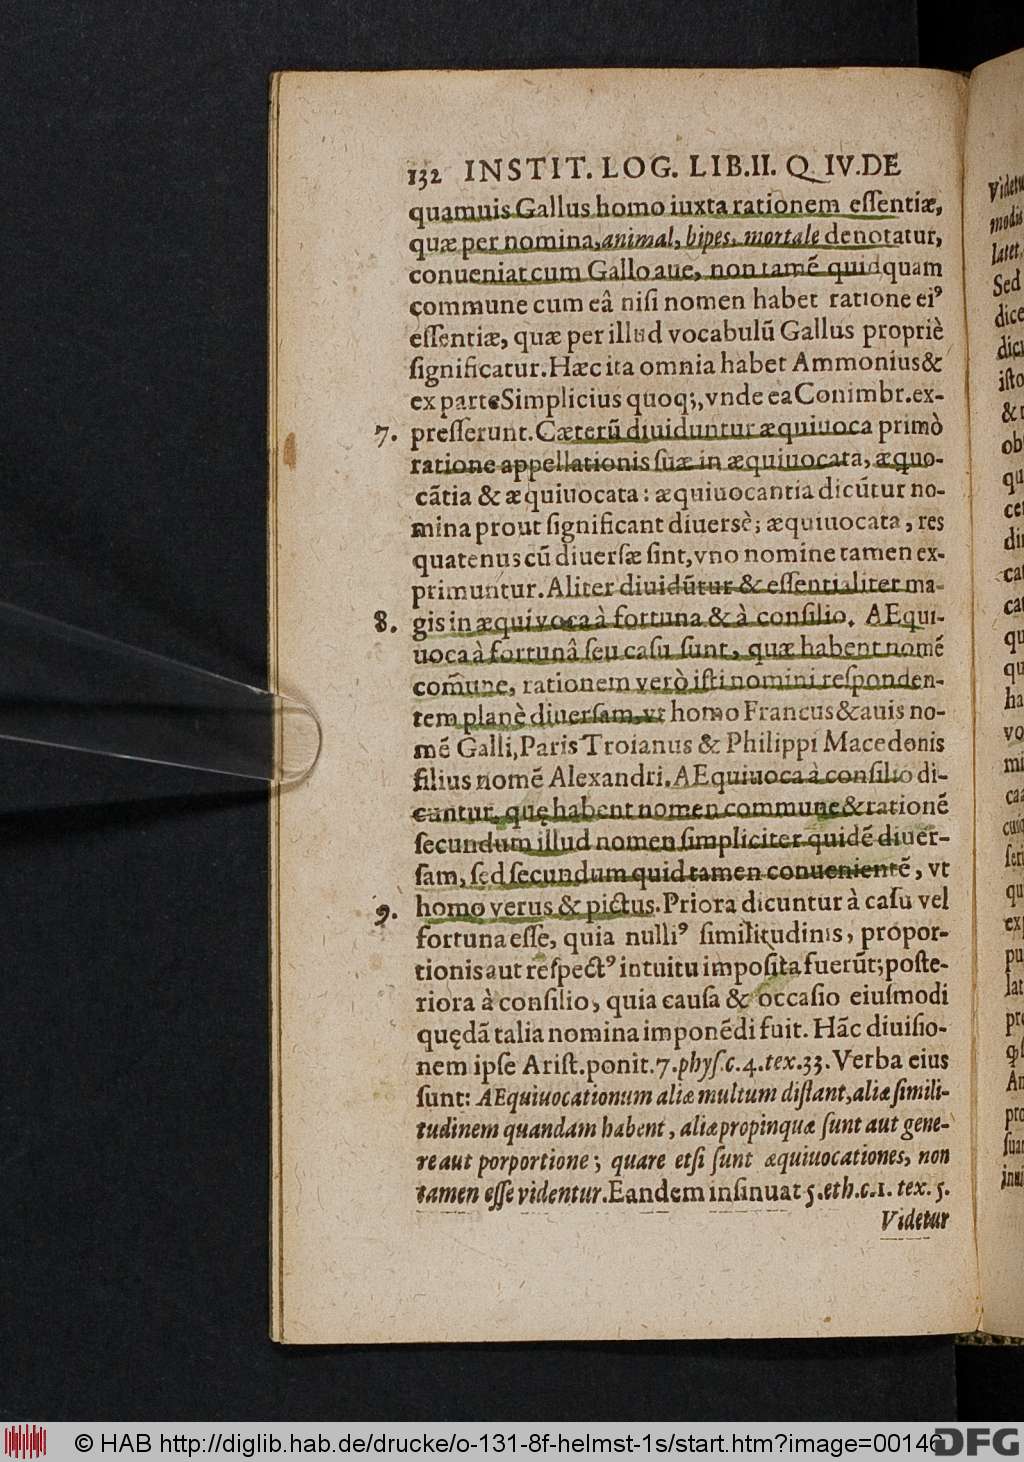 132 INSTIT. LOG. LIB.II. Q IV.DE
quamuis Gallus homo iuxta rationem essentiæ,
quæ per nomina, animal, bipes, mortale denotatur,
conueniat cum Gallo aue, non tamẽ quidquam
commune cum eâ nisi nomen habet ratione eiꝰ
essentiæ, quæ per illud vocabulũ Gallus propriè
significatur. Hæc ita omnia habet Ammonius &
ex parte Simplicius quoq;, vnde ea Conimbr. ex-
7. presserunt. Cæterũ diuiduntur æquiuoca primò
ratione appellationis suæ in æquiuocata, æquo-
cãtia & æquiuocata: æquiuocantia dicũtur no-
mina prout significant diuersè; æquiuocata, res
quatenus cũ diuersæ sint, vno nomine tamen ex-
primuntur. Aliter diuidũtur & essentialiter ma-
8. gis in æquivoca à fortuna & à consilio. AEqui-
uoca à fortunâ seu casu sunt, quæ habent nomẽ
com̃une, rationem verò isti nomini responden-
tem planè diuersam, vt homo Francus & auis no-
mẽ Galli, Paris Troianus & Philippi Macedonis
filius nomẽ Alexandri. AEquiuoca à consilio di-
cuntur, quę habent nomen commune & rationẽ
secundum illud nomen simpliciter quidẽ diuer-
sam, sed secundum quid tamen conuenientẽ, vt
9. homo verus & pictus. Priora dicuntur à casu vel
fortuna esse, quia nulliꝰ similitudinis, propor-
tionis aut respectꝰ intuitu imposita fuerũt; poste-
riora à consilio, quia causa & occasio eiusmodi
quędã talia nomina imponẽdi fuit. Hãc diuisio-
nem ipse Arist. ponit. 7. phys. c. 4. tex. 33. Verba eius
sunt: AEquiuocationum aliæ multum distant, aliæ simili-
tudinem quandam habent, aliæ propinquæ sunt aut gene-
re aut porportione; quare etsi sunt æquiuocationes, non
tamen esse videntur. Eandem insinuat 5. eth. c. 1. tex. 5.
Videtur
© HAB http://diglib.hab.de/drucke/o-131-8f-helmst-1s/start.htm?image=00146
DFG